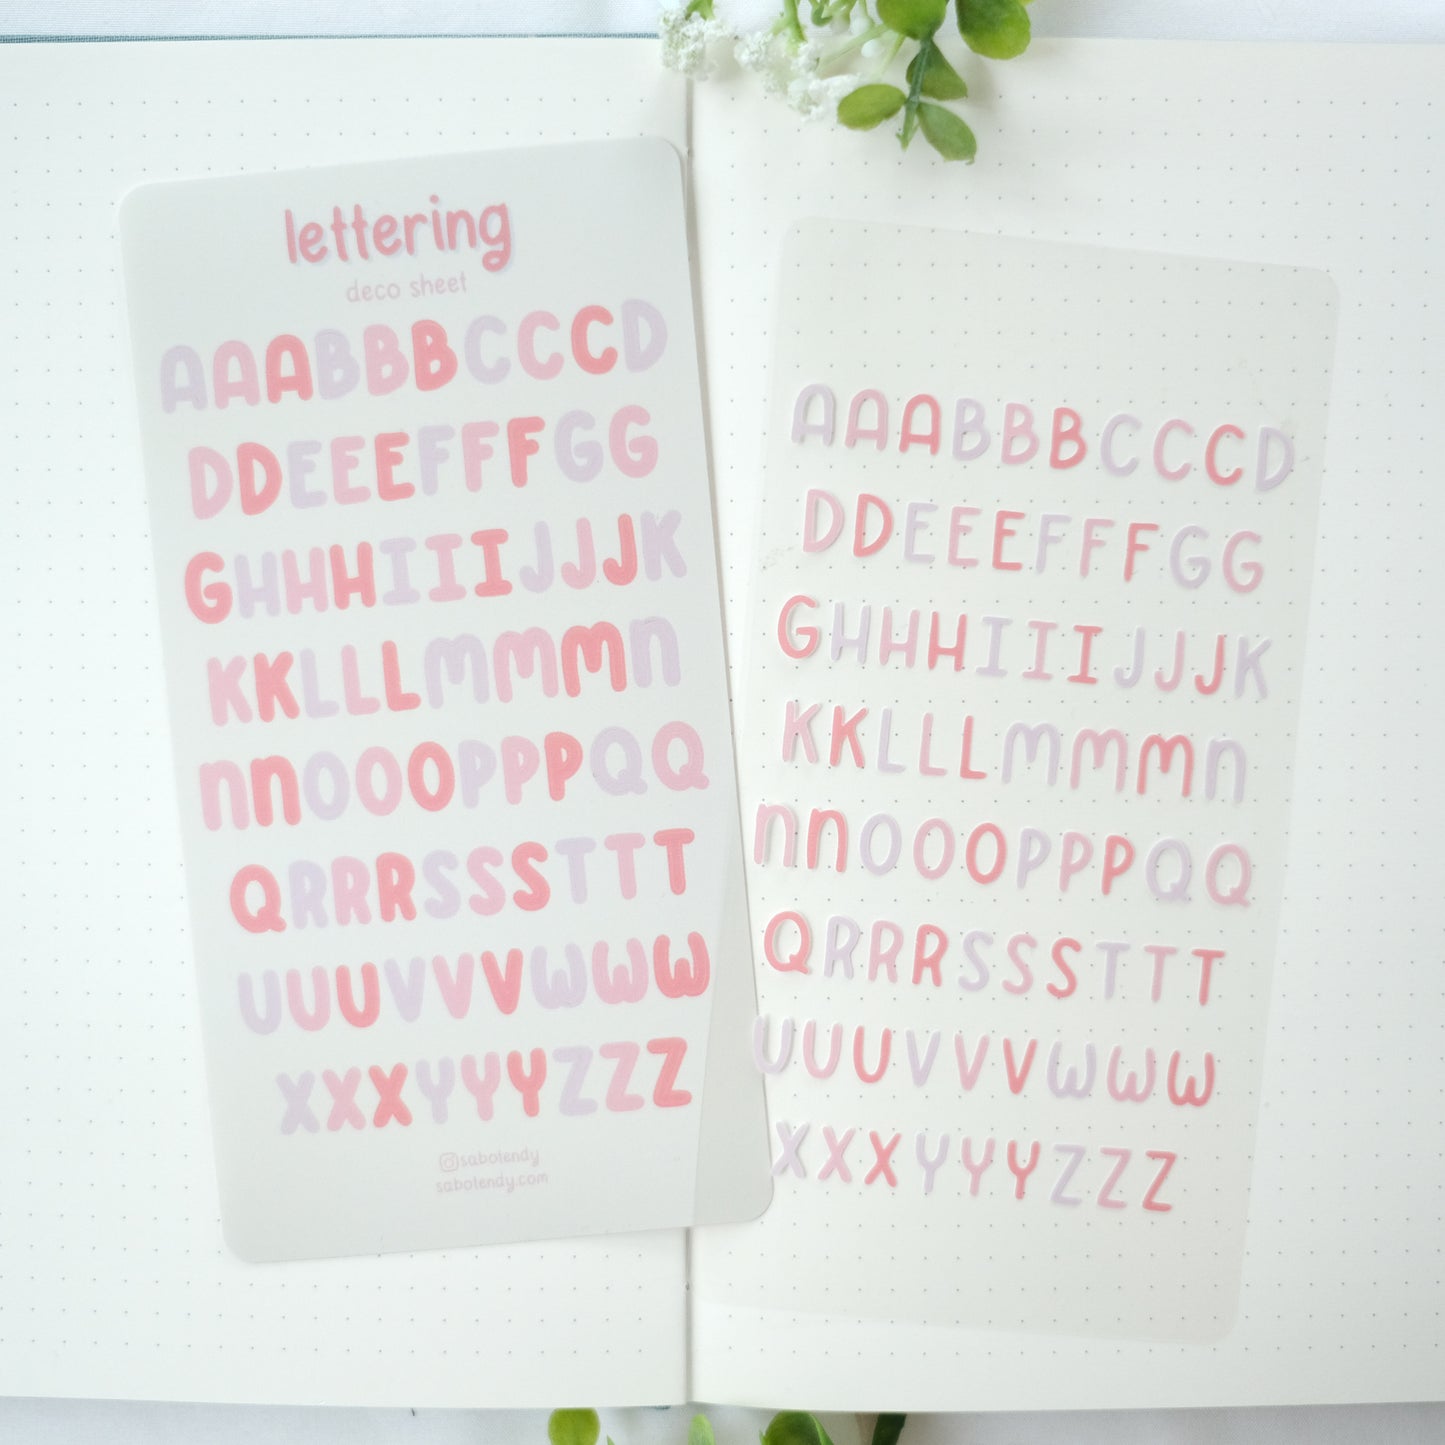 lettering
deco sheet
AAABBBCCCD
DDEEEFFFGG
GHHHIIIJJJK
KKLLLMMMN
NNOOOPPPQQ
QRRRSSSTTT
UUUVVVWWW
XXXYYYZZZ
sabotendy
sabotendy.com
AAABBBCCCD
DDEEEFFFGG
GHHHIIIJJJK
KKLLLMMMN
NNOOOPPPQQ
QRRRSSSTTT
UUUVVVWWW
XXXYYYZZZ